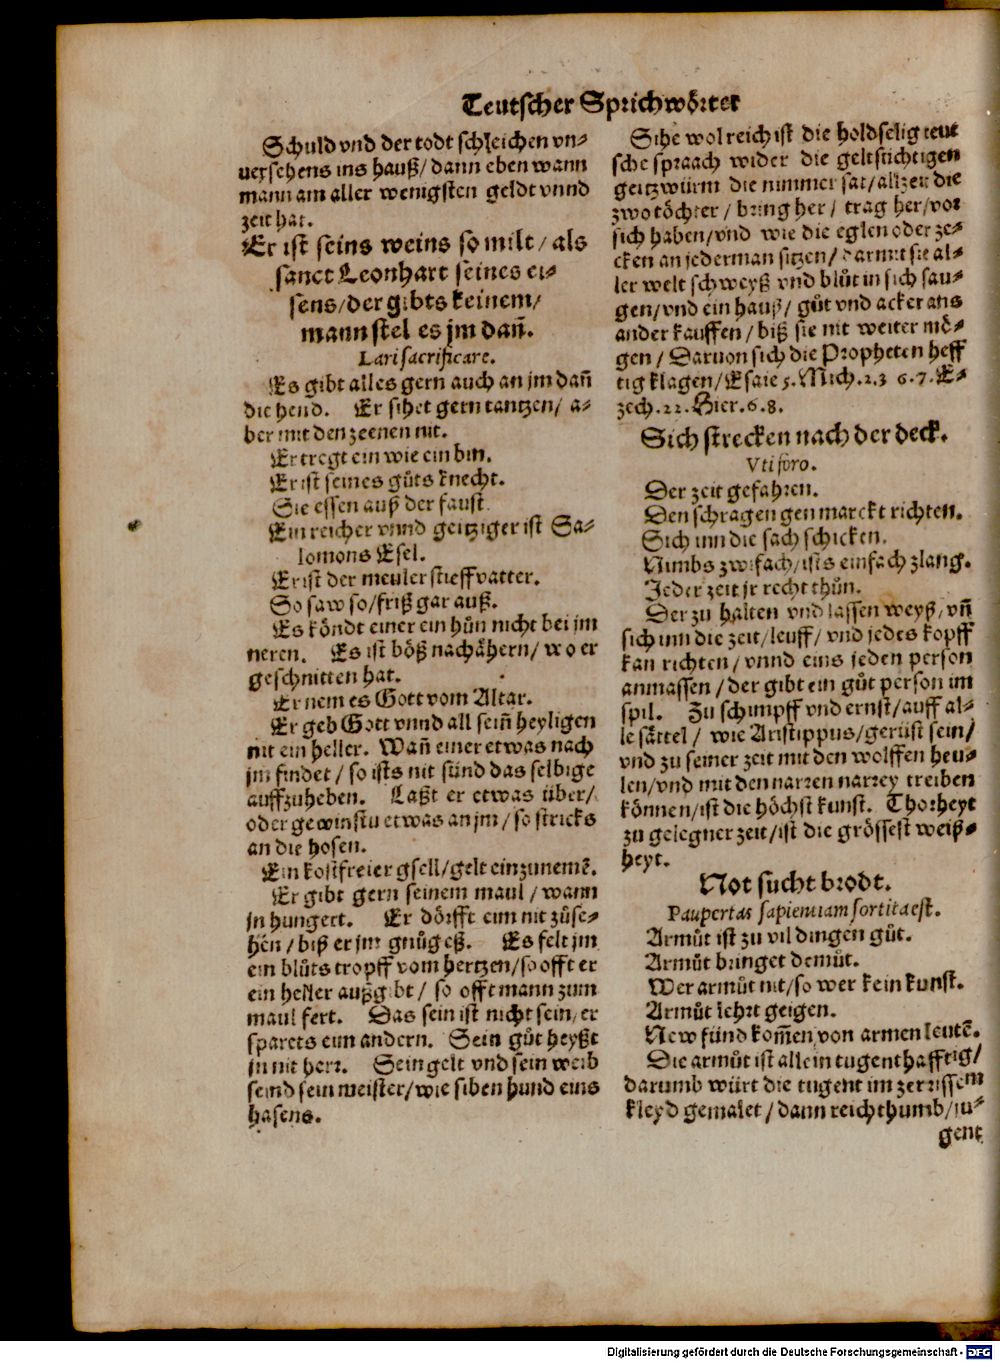 Teutscher Sprichwörter
Schuld vnd der todt schleichen vn⸗
uersehens ins hauß/ dann eben wann
mann am aller wenigsten geldt vnnd
zeit hat.
Er ist seins weins so milt/ als
sanct Leonhart seines ei⸗
sens/ der gibts keinem/
mann stel es jm dañ.
Lari sacrificare.
Es gibt alles gern auch an jm dañ
die hend. Er sihet gern tantzen/ a⸗
ber mit den zeenen nit.
Er tregt ein wie ein bin.
Er ist seines gůts knecht.
Sie essen auß der faust.
Ein reicher vnnd geitziger ist Sa⸗
lomons Esel.
Er ist der meuler stieffvatter.
So saw so/ friß gar auß.
Es köndt einer ein hůn nicht bei jm
neren. Es ist böß nachähern/ wo er
geschnitten hat.
Er nem es Gott vom Altar.
Er geb Gott vnnd all sein̄ heyligen
nit ein heller. Wañ einer etwas nach
jm findet/ so ists nit sünd das selbige
auffzuheben. Laßt er etwas über/
oder gewinstu etwas an jm/ so stricks
an die hosen.
Ein kostfreier gsell/ gelt einzunemē.
Er gibt gern seinem maul/ wann
jn hungert. Er dörfft eim nit zůse⸗
hen/ biß er jm gnůg eß. Es felt jm
ein blůts tropff vom hertzen/ so offt er
ein heller außgibt/ so offt mann zum
maul fert. Das sein ist nicht sein/ er
sparets eim andern. Sein gůt heyßt
jn nit herr. Sein gelt vnd sein weib
seind sein meister/ wie siben hund eins
hasens.
Sihe wol reich ist die holdselig teut
sche spraach wider die geltsüchtigen
geitzwürm die nimmer sat/ allzeit die
zwo töchter/ bring her/ trag her/ vor
sich haben/ vnd wie die eglen oder ze⸗
cken an jederman sitzen/ darmit sie al⸗
ler welt schweyß vnd blůt in sich sau⸗
gen/ vnd ein hauß/ gůt vnd acker ans
ander kauffen/ biß sie nit weiter mö⸗
gen/ Daruon sich die Propheten heff
tig klagen/ Esaie 5. Mich. 2. 3 6. 7. E⸗
zech. 22. Hier. 6. 8.
Sich strecken nach der deck.
Vti foro.
Der zeit gefahren.
Den schragen gen marckt richten.
Sich inn die sach schicken.
Nimbs zwifach/ ists einfach zlang.
Jeder zeit jr recht thůn.
Der zu halten vnd lassen weyß/ vñ
sich inn die zeit/ leuff/ vnd jedes kopff
kan richten/ vnnd eins jeden person
anmassen/ der gibt ein gůt person im
spil. Zu schimpff vnd ernst/ auff al⸗
le sättel/ wie Aristippus/ gerüst sein/
vnd zu seiner zeit mit den wolffen heu⸗
len/ vnd mit den narren narrey treiben
können/ ist die höchst kunst. Thorheyt
zu gelegner zeit/ ist die grössest weiß⸗
heyt.
Not sucht brodt.
Paupertas sapientiam sortita est.
Armůt ist zu vil dingen gůt.
Armůt bringet demůt.
Wer armůt nit/ so wer kein kunst.
Armůt lehrt geigen.
New fünd kom̄en von armen leutē.
Die armůt ist allein tugenthafftig/
darumb würt die tugent im zerrissem
kleyd gemalet/ dann reichthumb/ ju⸗
gent
Digitalisierung gefördert durch die Deutsche Forschungsgemeinschaft - DFG